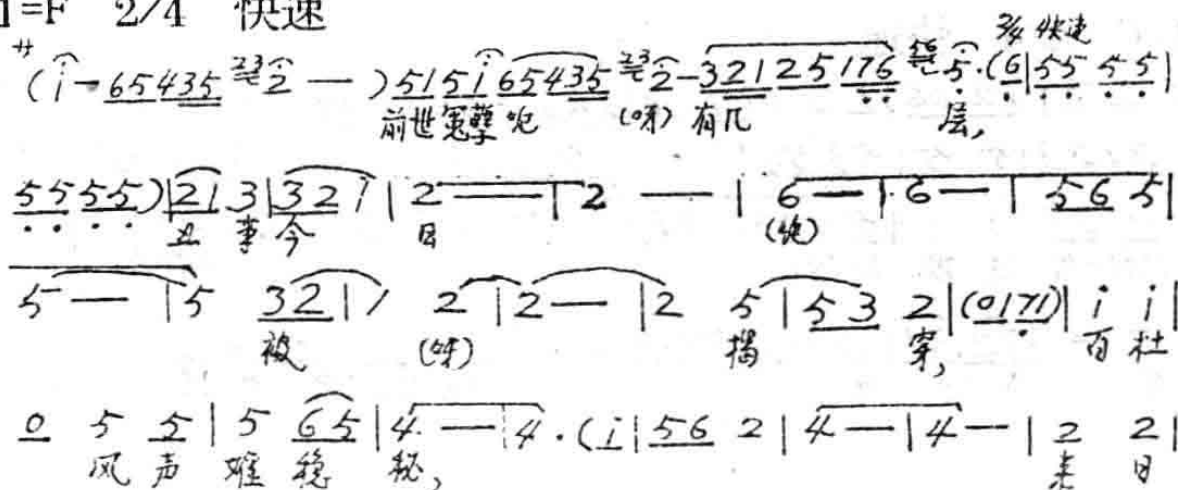 1=F 2/4 快速
サ 3/4 快速
(i - 65435 23 2 — ) 515i 65435 23 2 - 32125176 56 5·(6|55 55|
前世冤孽吃 (呀) 有几 层,
55 55)|21 3|321|2 —|2 —|6 —|6 —|56 5|
丑事今 日 (纯)
5 —|5 32|1 2|2 —|2 5|53 2|(0171)|i i|
被 (呀) 揭 穿, 百杜
0 5 5|5 65|4 —|4·(i|56 2|4 —|4 —|2 2|
风声难稳 秘, 来日